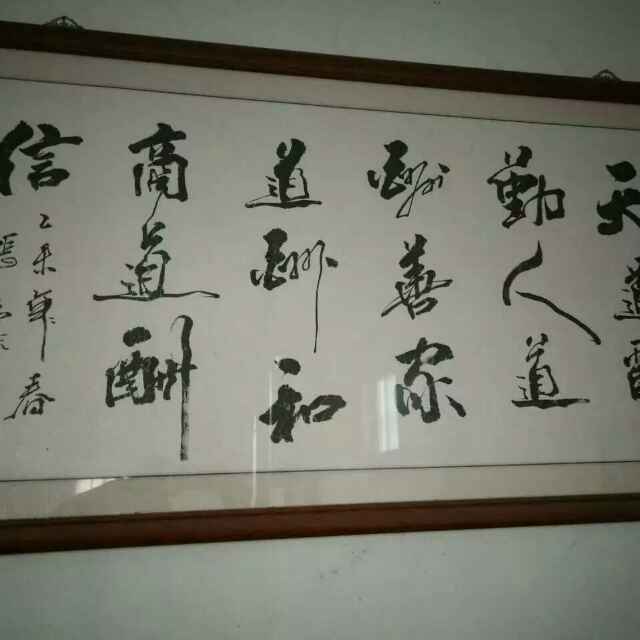 天道酬
勤人道
酬善家
道酬和
商道酬
信
乙未年春